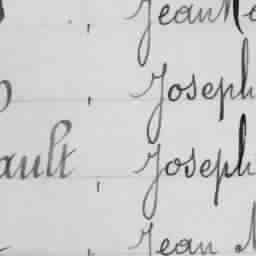 , Jean
, Joseph
ault , Joseph
, Jean